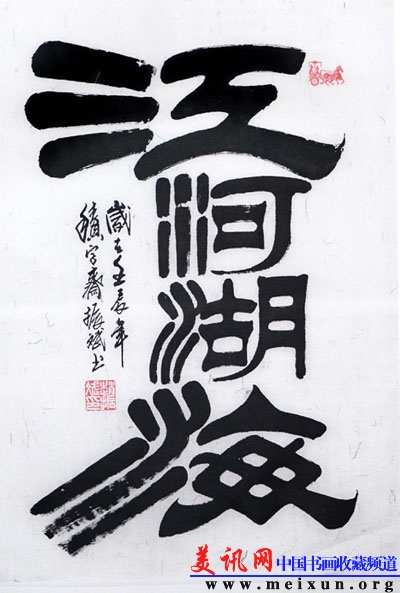 江河湖海
歲壬辰年
字齋振斌书
美讯网 中国书画收藏频道
www.meixun.org